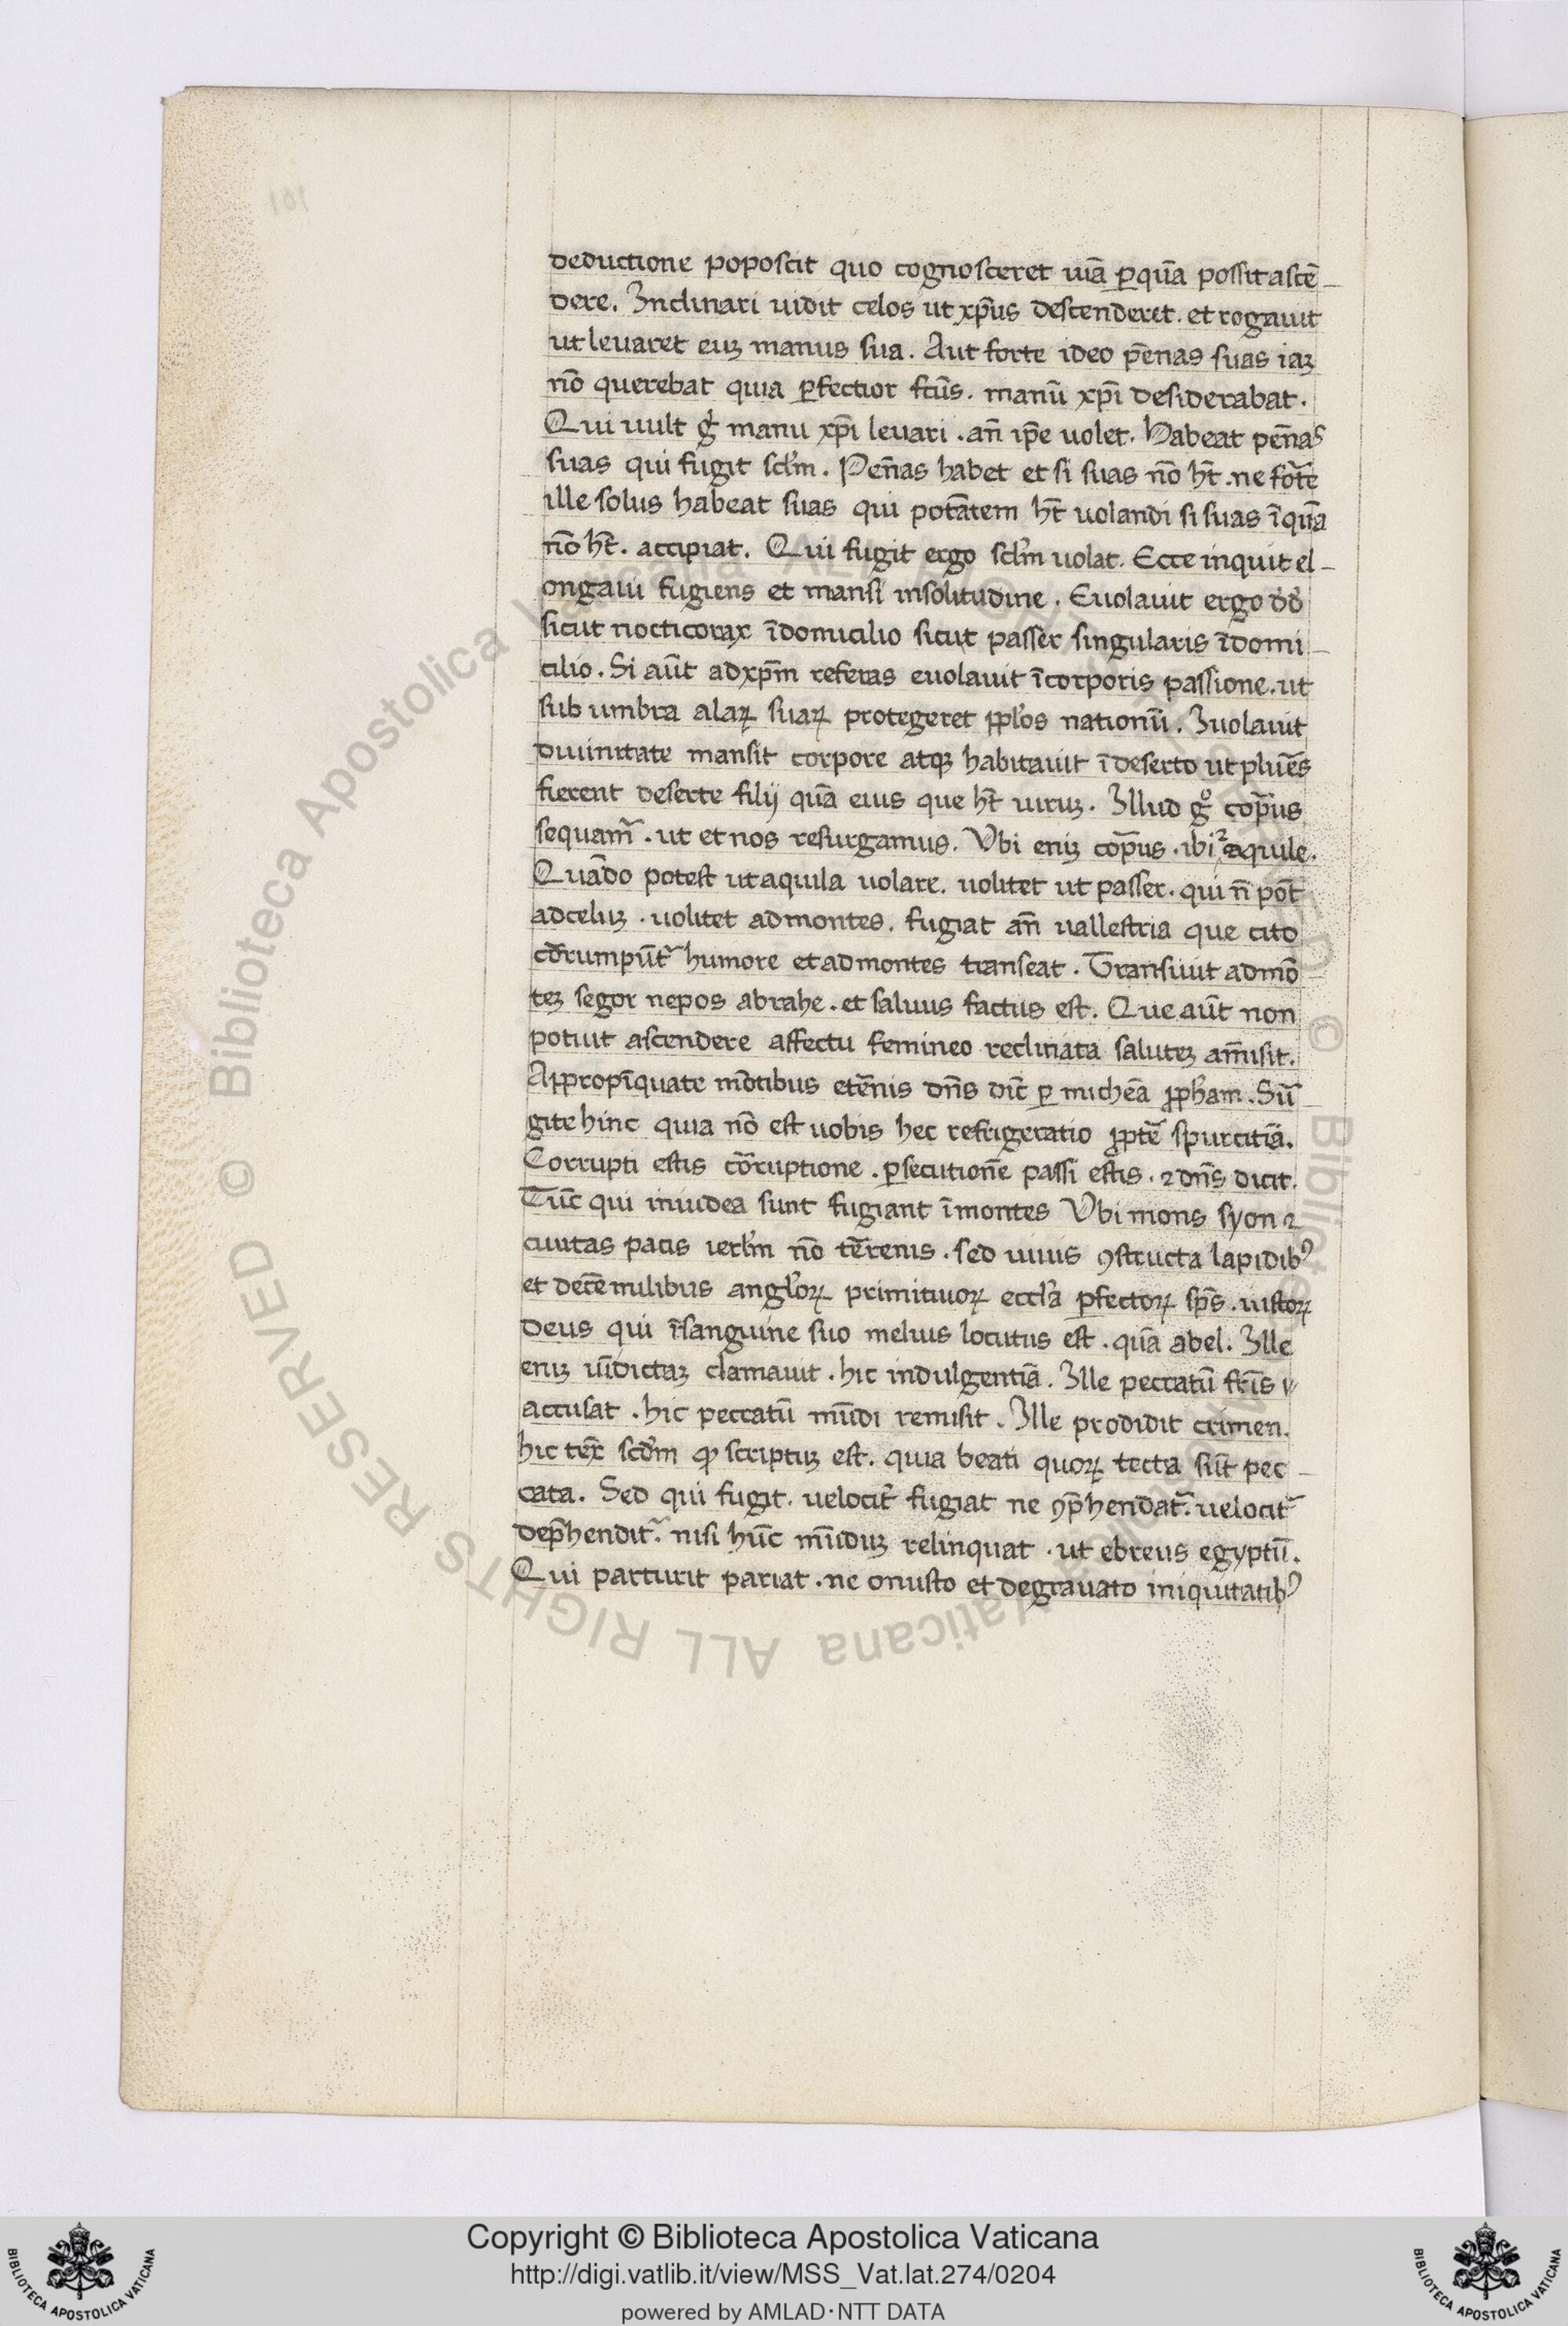 101
deductione poposcit quo cognosceret uiā ꝑ quā possit ascē-
dere. Inclinari uidit celos ut xp̄us descenderet. et rogauit
ut leuaret euꝫ manus sua. Aut forte ideo pēnas suas iaꝫ
nō querebat quia ꝑfectior fctūs. manū xp̄i desiderabat.
Qui uult gͥ manu xp̄i leuari. an̄ ip̄e uolet. Habeat pen̄as
suas qui fugit scl̄m. Pen̄as habet et si suas nō ht̄. ne fort̄e
ille solus habeat suas qui potātem ht̄ uolandi si suas īquā
nō ht̄. accipiat. Qui fugit ergo scl̄m uolat. Ecce inquit el-
ongaui fugiens et mansi in solitudine. Euolauit ergo dd̄
sicut nocticorax ī domicilio sicut passer singularis ī domi-
cilio. Si aūt ad xp̄m referas euolauit ī corporis passione. ut
sub umbra alaꝝ suaꝝ protegeret ppl̄os nationū. Iuolauit
diuinitate mansit corpore atqꝫ habitauit ī deserto ut pluēs
fierent deserte filij quā eius que ht̄ uiruꝫ. Illud gͦ cop̄us
sequam̄. ut et nos resurgamus. Vbi eniꝫ cop̄us. ibi ⁊ aquile.
Quādo potest ut aquila uolare. uolitet ut passer. qui n̄ pōt
ad celuꝫ. uolitet ad montes. fugiat an̄ uallestria que cito
cōrumpūt̄ humore et ad montes transeat. Transiuit ad mō
teꝫ segor nepos abrahe. et saluus factus est. Que aūt non
potuit ascendere affectu femineo reclinata saluteꝫ am̄isit.
Appropīquate mōtibus etēnis dn̄s dic̄ ꝑ micheā ꝓph̄am. Sū
gite hinc quia nō est uobis hec refrigeratio ꝓpt̄e spurcitiā.
Corrupti estis cōrruptione. ꝑsecutionē passi estis. ⁊ dn̄s dicit.
Tūc qui in iudea sunt fugiant ī montes Vbi mons syon ⁊
ciuitas pacis ierl̄m nō tērenis. sed uiuis ꝯstructa lapidibꝰ
et decē milibus angl̄oꝝ primitiuoꝝ eccl̄a ꝑfectoꝝ sp̄s. iustoꝝ
deus qui ī sanguine suo melius locutus est. quā abel. Ille
eniꝫ uīdictaꝫ clamauit. hic indulgentiā. Ille peccatū frīs
accusat. hic peccatū mūdi remisit. Ille prodidit crimen.
hic tex̄ scd̄m ꝙ scriptuꝫ est. quia beati quoꝝ tecta sūt pec-
cata. Sed qui fugit. uelocit̄ fugiat ne ꝯp̄hendat̄. uelocit̄
dep̄hendit̄. nisi hūc mūduꝫ relinquat. ut ebreus egyptū.
Qui parturit pariat. ne onusto et degrauato iniquitatibꝰ
© Biblioteca Apostolica Vaticana ALL RIGHTS RESERVED
Copyright © Biblioteca Apostolica Vaticana
http://digi.vatlib.it/view/MSS_Vat.lat.274/0204
powered by AMLAD·NTT DATA
BIBLIOTECA APOSTOLICA VATICANA
BIBLIOTECA APOSTOLICA VATICANA